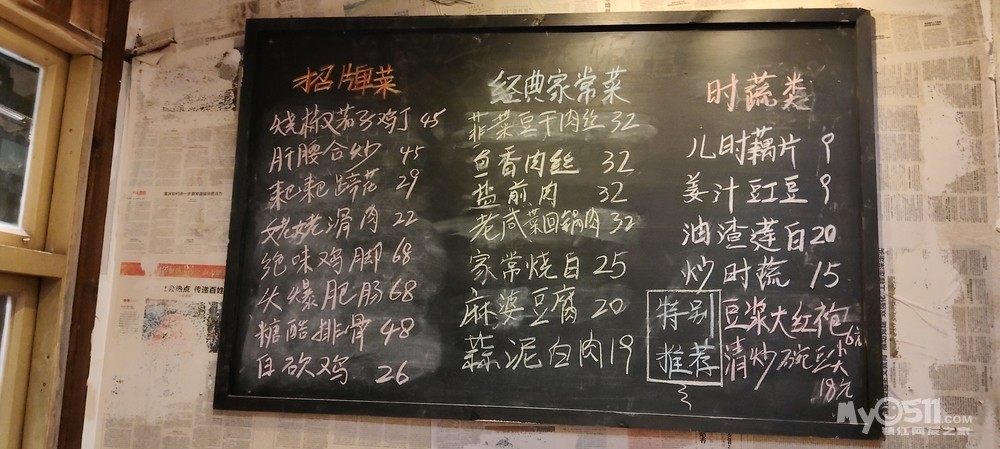 招牌菜
烧椒茄子鸡丁 45
肝腰合炒 45
耙耙蹄花 29
姥姥滑肉 22
绝味鸡脚 68
火爆肥肠 68
糖醋排骨 48
白砍鸡 26
经典家常菜
韮菜豆干肉丝 32
鱼香肉丝 32
盐煎肉 32
老咸菜回锅肉 32
家常烧白 25
麻婆豆腐 20
蒜泥白肉 19
时蔬类
儿时藕片 9
姜汁豇豆 9
油渣莲白 20
炒时蔬 15
特别
推荐
豆浆大红袍
清炒碗豆尖
18元
My0511.COM